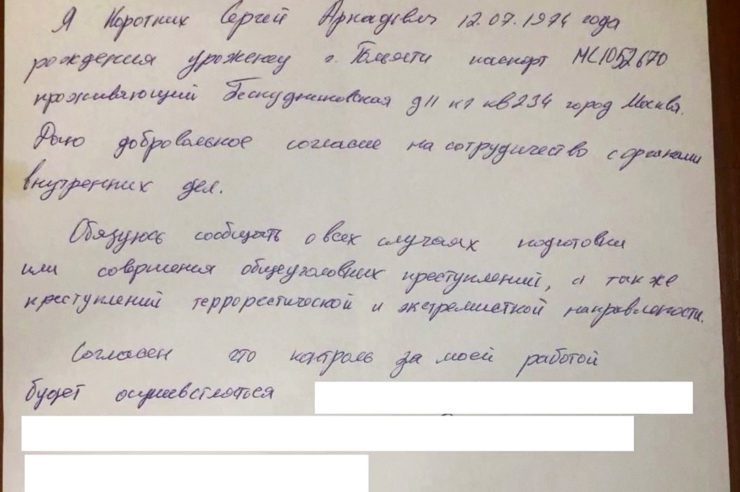 Я Коротких Сергей Аркадьевич 12.07.1974 года
рождения уроженец г. Тольяти паспорт МС1052670
проживающий Бескудниковская д11 к1 кв234 город Москва.
Даю добровольное согласие на сотрудничество с органами
внутренних дел.
Обязуюсь сообщать о всех случаях подготовки
или совершения общеуголовных преступлений, а также
преступлений террорестической и экстремисткой направлености.
Согласен что контроль за моей работой
будет осушевстляться